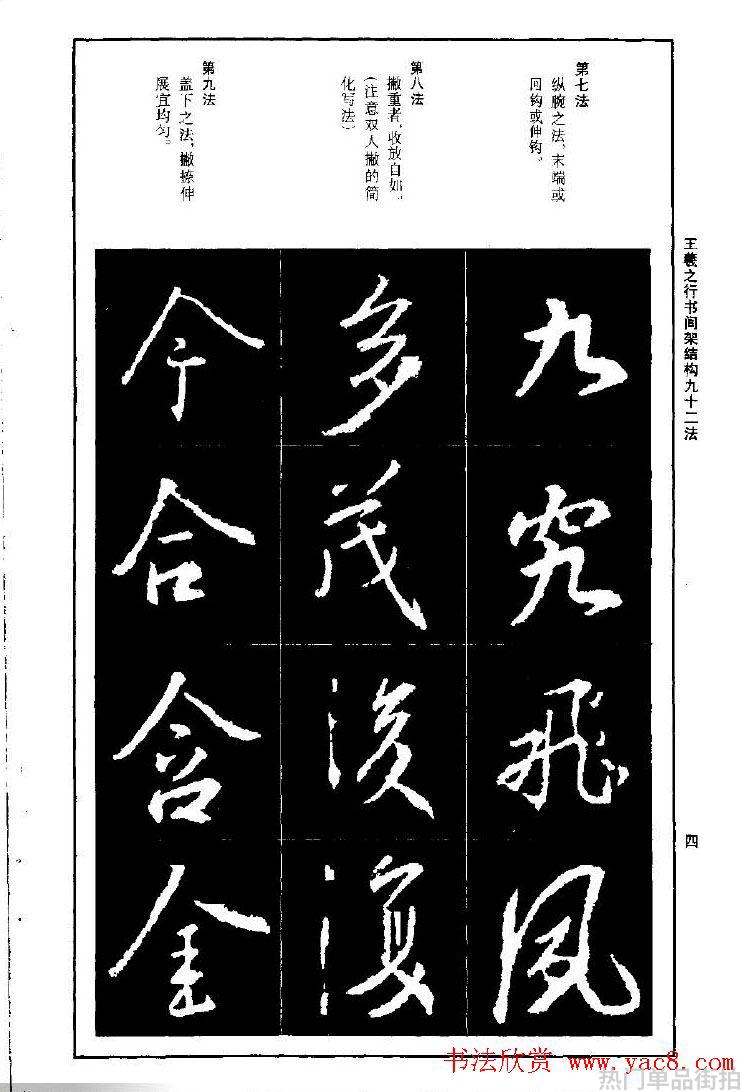 王羲之行书间架结构九十二法
第七法
纵腕之法，末端或
回钩或伸钩。
九究飛風
第八法
撇重者，收放自如。
（注意双人撇的简
化写法）
多茂後復
第九法
盖下之法，撇捺伸
展宜均匀。
今合含金
四
书法欣赏 www.yac8.com
热门单品街拍